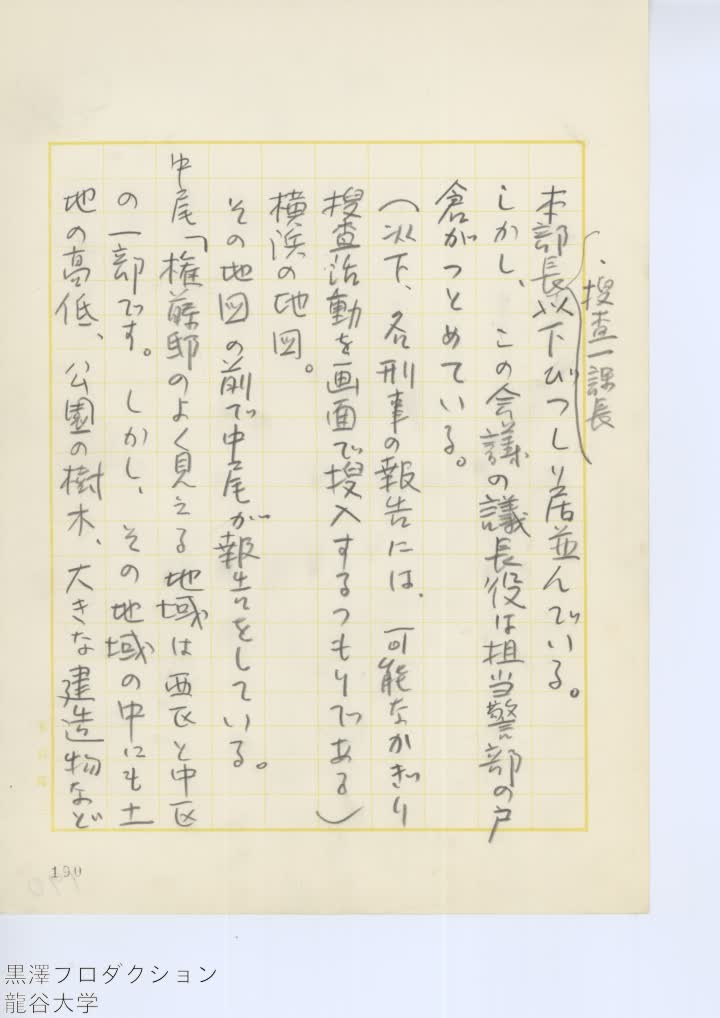 ・捜査一課長
本部長以下びつしり居並んでいる。
しかし、この会議の議長役は担当警部の戸
倉がつとめている。
（以下、各刑事の報告には、可能なかぎり
捜査活動を画面で挿入するつもりである）
横浜の地図。
その地図の前で中尾が報告をしている。
中尾「権藤邸のよく見える地域は西区と中区
の一部です。しかし、その地域の中にも土
地の高低、公園の樹木、大きな建造物など
190
黒澤プロダクション
龍谷大学